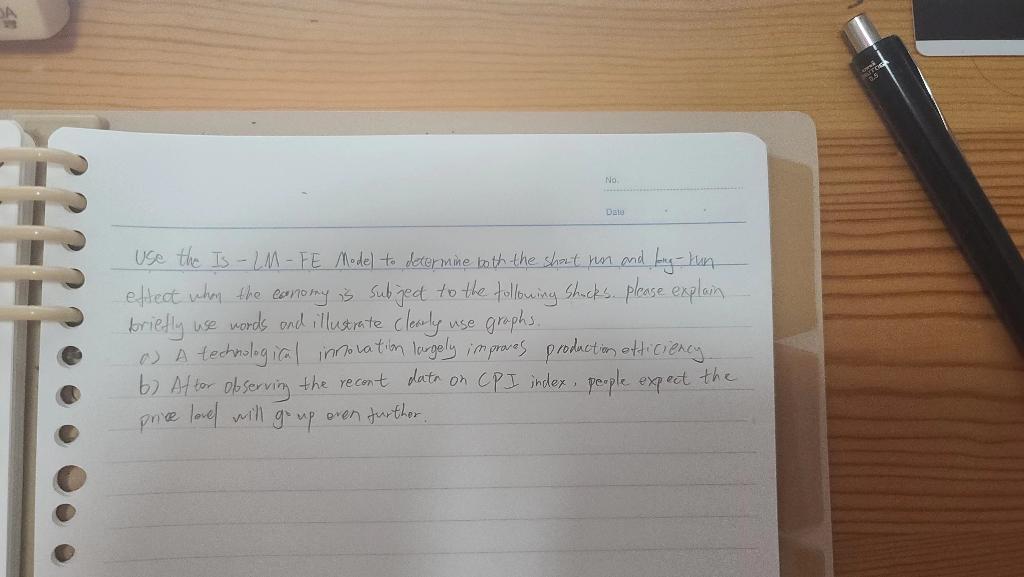 No.
Date
Use the Is-LM-FE Model to determine both the short run and long-run
effect when the economy is subject to the following shocks. please explain
briefly use words and illustrate clearly use graphs.
a) A technological innovation largely improves production efficiency
b) After observing the recent data on CPI index, people expect the
price level will go up even further.
uni
0.5